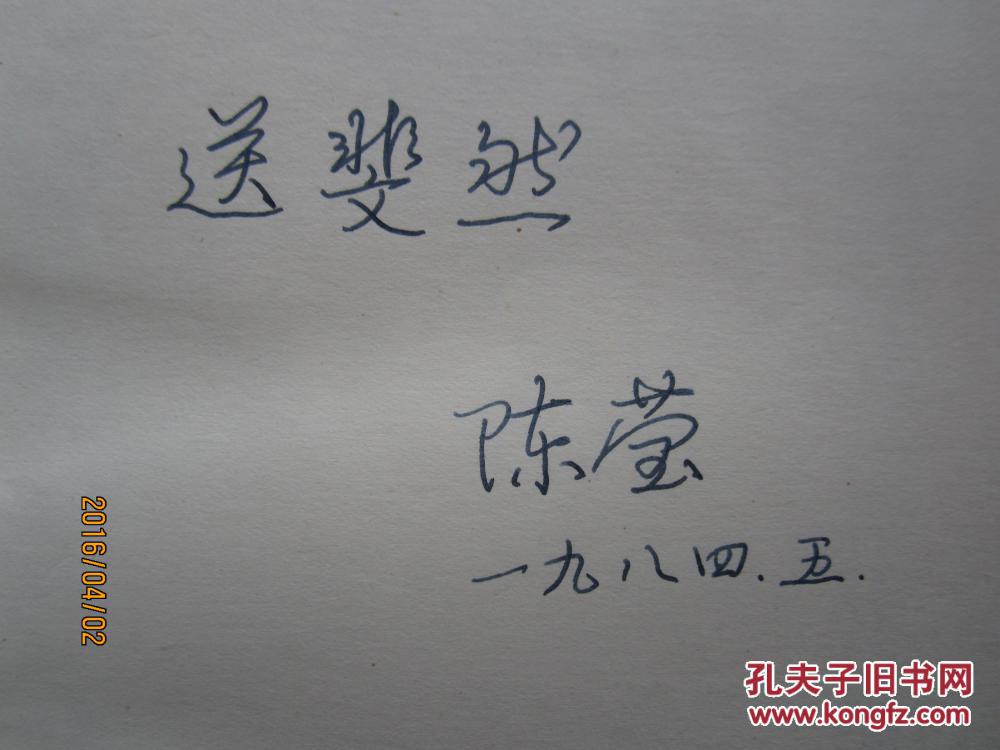 送斐然
陈莹
一九八四.五.
2016/04/02
孔夫子旧书网
www.kongfz.com